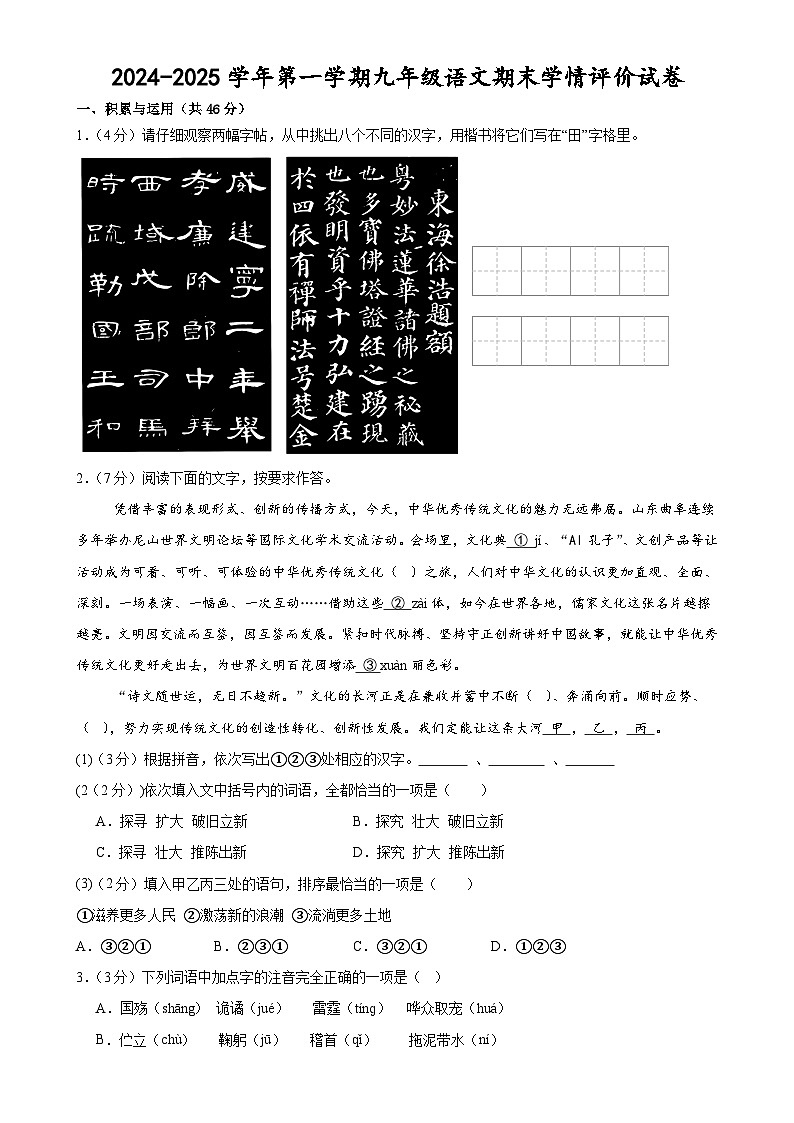 2024-2025 学年第一学期九年级语文期末学情评价试卷
一、积累与运用（共 46 分）
1.（4 分）请仔细观察两幅字帖，从中挑出八个不同的汉字，用楷书将它们写在“田”字格里。
威建寧二年舉
孝廉除郎中拜
西域戊部司馬
時疏勒國王和
東海徐浩題額
粤妙法蓮華諸佛之祕藏
也多寶佛塔證經之踴現
也發明資乎十力弘建在
於四依有禪師法号楚金
2.（7 分）阅读下面的文字，按要求作答。
凭借丰富的表现形式、创新的传播方式，今天，中华优秀传统文化的魅力无远弗届。山东曲阜连续
多年举办尼山世界文明论坛等国际文化学术交流活动。会场里，文化典 ① jí、“AI 孔子”、文创产品等让
活动成为可看、可听、可体验的中华优秀传统文化（  ）之旅，人们对中华文化的认识更加直观、全面、
深刻。一场表演、一幅画、一次互动……借助这些 ② zài 体，如今在世界各地，儒家文化这张名片越擦
越亮。文明因交流而互鉴，因互鉴而发展。紧扣时代脉搏、坚持守正创新讲好中国故事，就能让中华优秀
传统文化更好走出去，为世界文明百花园增添 ③ xuàn 丽色彩。
“诗文随世运，无日不趋新。”文化的长河正是在兼收并蓄中不断（  ）、奔涌向前。顺时应势、
（  ），努力实现传统文化的创造性转化、创新性发展。我们定能让这条大河 甲 ， 乙 ， 丙 。
(1)（3 分）根据拼音，依次写出①②③处相应的汉字。_______ 、________ 、_______
(2（2 分）)依次填入文中括号内的词语，全都恰当的一项是（    ）
A．探寻 扩大 破旧立新 B．探究 壮大 破旧立新
C．探寻 壮大 推陈出新 D．探究 扩大 推陈出新
(3)（2 分）填入甲乙丙三处的语句，排序最恰当的一项是（    ）
①滋养更多人民 ②激荡新的浪潮 ③流淌更多土地
A．③②① B．②③① C．③②① D．①②③
3.（3 分）下列词语中加点字的注音完全正确的一项是（  ）
A．国殇（shāng） 诡谲（jué） 雷霆（tíng） 哗众取宠（huá）
B．伫立（chù） 鞠躬（jū） 稽首（qǐ） 拖泥带水（ní）